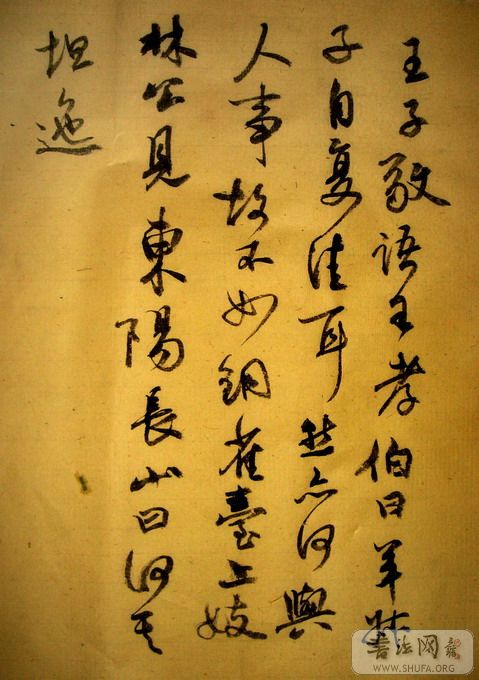 王子敬語王孝伯曰羊叔
子自复佳耳然亦何與
人事故不如銅雀臺上妓
林公見東陽長山曰何其
坦迤
書法网
WWW.SHUFA.ORG